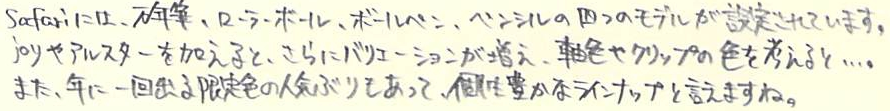 Safariには、万年筆、ローラーボール、ボールペン、ペンシルの四つのモデルが設定されています。
joyやアルスターを加えると、さらにバリエーションが増え、軸色やクリップの色を考えると…。
また、年に一回出る限定色の人気ぶりもあって、個性豊かなラインナップと言えますね。